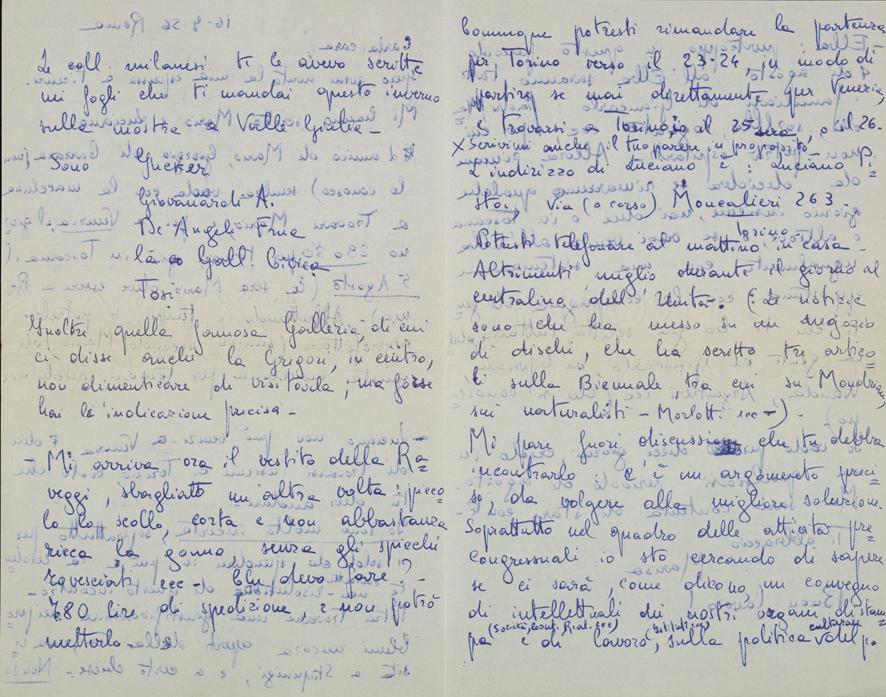 Le coll. milanesi te le avevo scritte
nei fogli che ti mandai questo inverno
sulla mostra a Valle Giulia -
Sono Jucker
Giovanardi A.
De Angeli Frua
la Gall. Civica
Tosi
Inoltre quella famosa Galleria di cui
ci disse anche la Gregori, in centro,
non dimenticare di visitarla; ma forse
hai l'indicazione precisa -
- Mi arriva ora il vestito della Ra=
veggi, sbagliato un'altra volta: picco
lo lo scollo, corta e non abbastanza
ricca la gonna, senza gli spicchi
rovesciati ecc - Che devo fare? -
780 lire di spedizione e non potrò
metterlo.
Comunque potresti rimandare la partenza
per Torino verso il 23-24, in modo di
partire se mai direttamente per Venezia,
e trovarsi a il 25 sera, o il 26.
x Scrivimi anche il tuo parere in proposito -
L'indirizzo di Luciano è: Luciano Pi=
stoi, via (o corso) Moncalieri 263 -
Torino
Potresti telefonare al mattino in casa -
Altrimenti meglio durante il giorno al
centralino dell'Unità. (Le notizie
sono che ha messo su un negozio
di dischi, che ha scritto tre artico=
li sulla Biennale tra cui su Mondrian,
sui naturalisti - Morlotti ecc -) -
Mi pare fuori discussione che tu debba
incontrarlo e c'è un argomento preci=
so, da volgere alla migliore soluzione.
Soprattutto nel quadro delle attività pre=
congressuali io sto cercando di sapere
se ci sarà, come dicono, un convegno
di intellettuali dei nostri organi di stam=
pa (Società, Cont., Rinal. ecc) e di lavoro (Istituti ecc), sulla politica culturale del p.